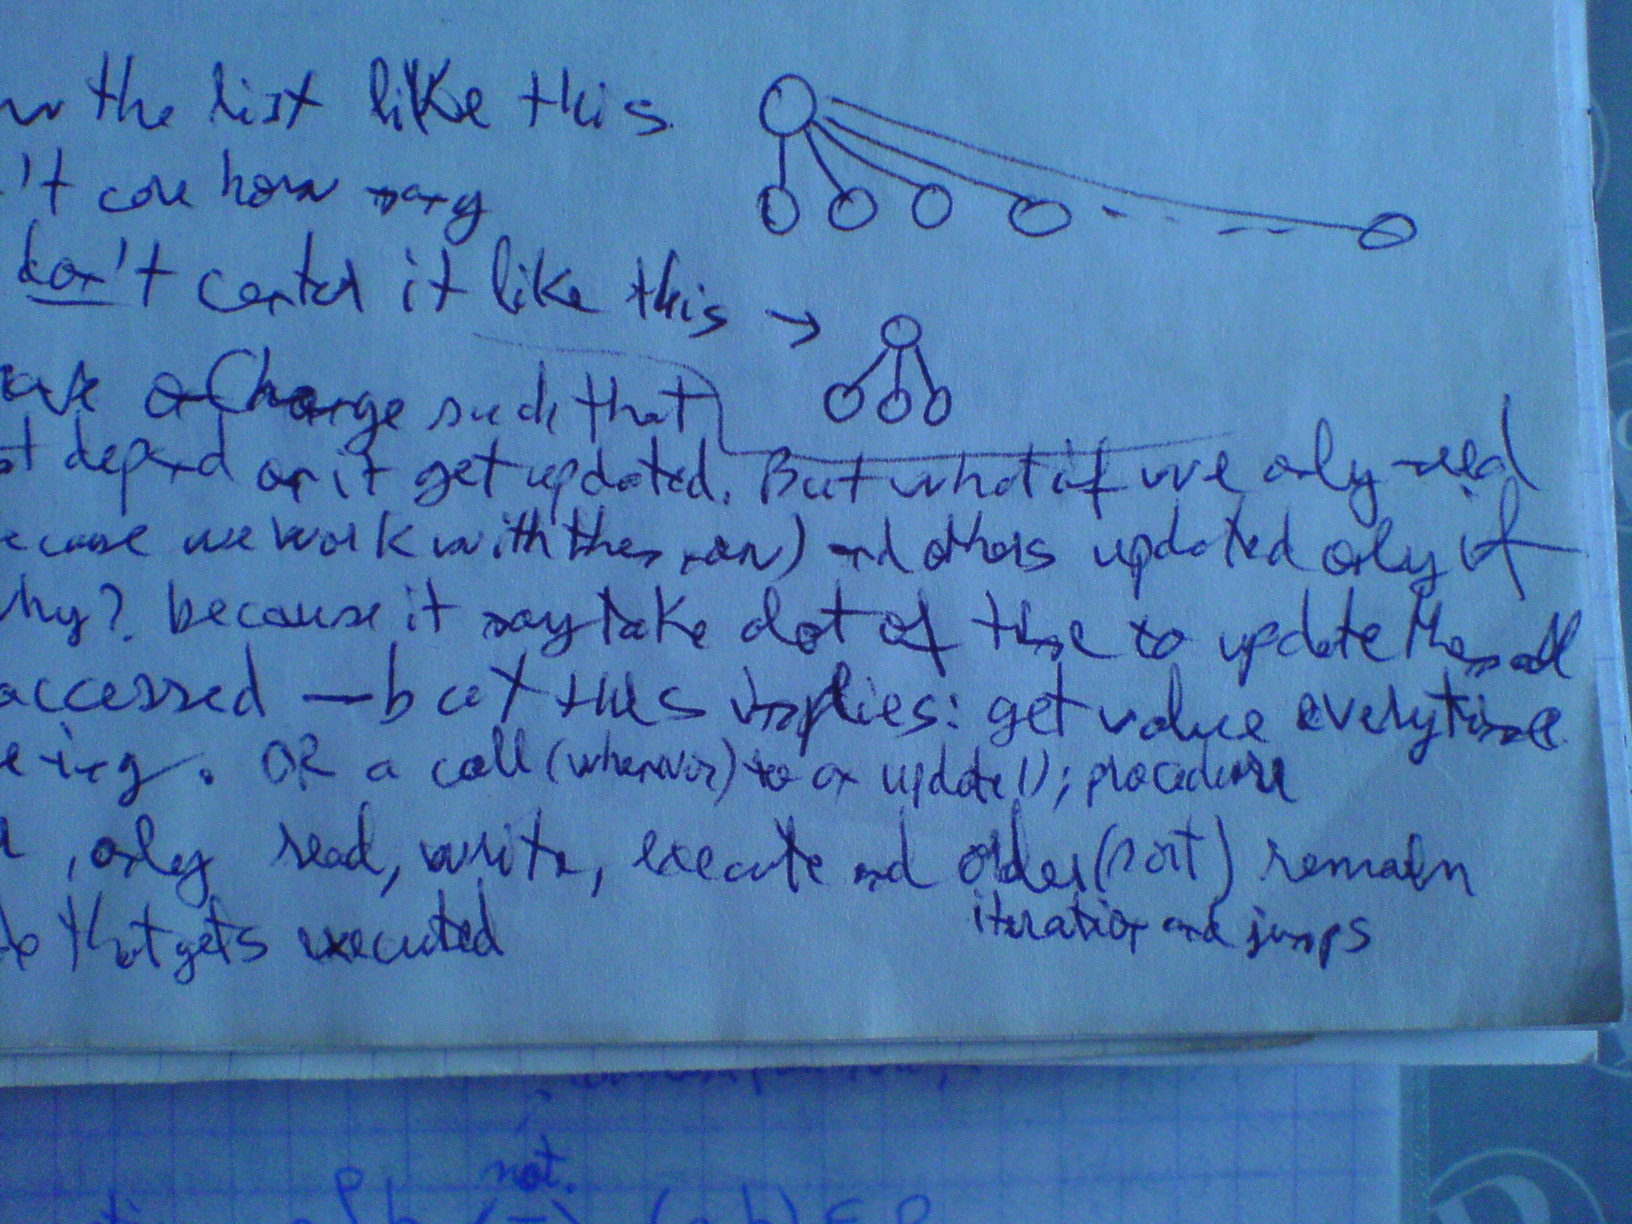 the list like this
't care how many
don't center it like this →
a change such that
depend on it get updated. But what if we only need
because we work with them now) and others updated only if
why? because it may take alot of time to update them all
accessed — but this implies: get value everytime
ing. OR a call (whenever) to an update(); procedure
, only read, write, execute and order (sort) remain
iteration and jumps
that gets executed
not.